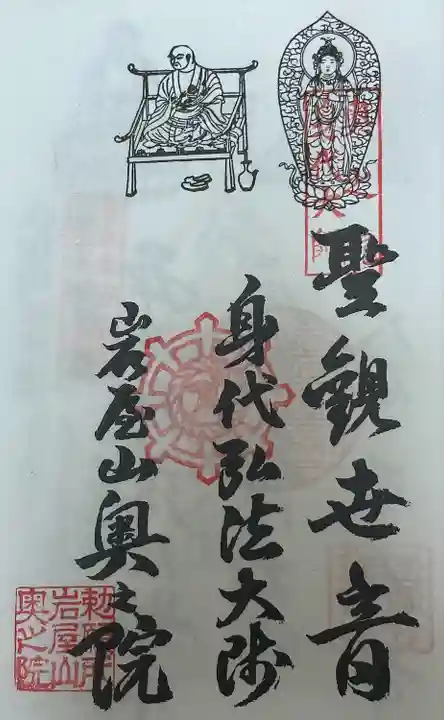 聖観世音
身代弘法大師
岩屋山奥之院
勅願所
岩屋山
奥之院